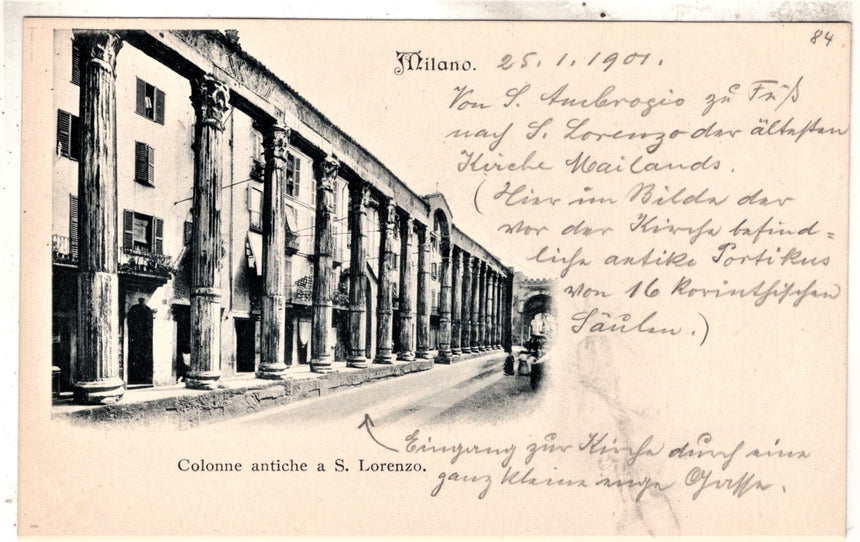 84
Milano. 25.1.1901.
Von S. Ambrogio zu Fuß
nach S. Lorenzo der ältesten
Kirche Mailands.
(Hier im Bilde der
vor der Kirche befind=
liche antike Portikus
von 16 korinthischen
Säulen.)
Eingang zur Kirche durch eine
ganz kleine enge Gasse.
Colonne antiche a S. Lorenzo.